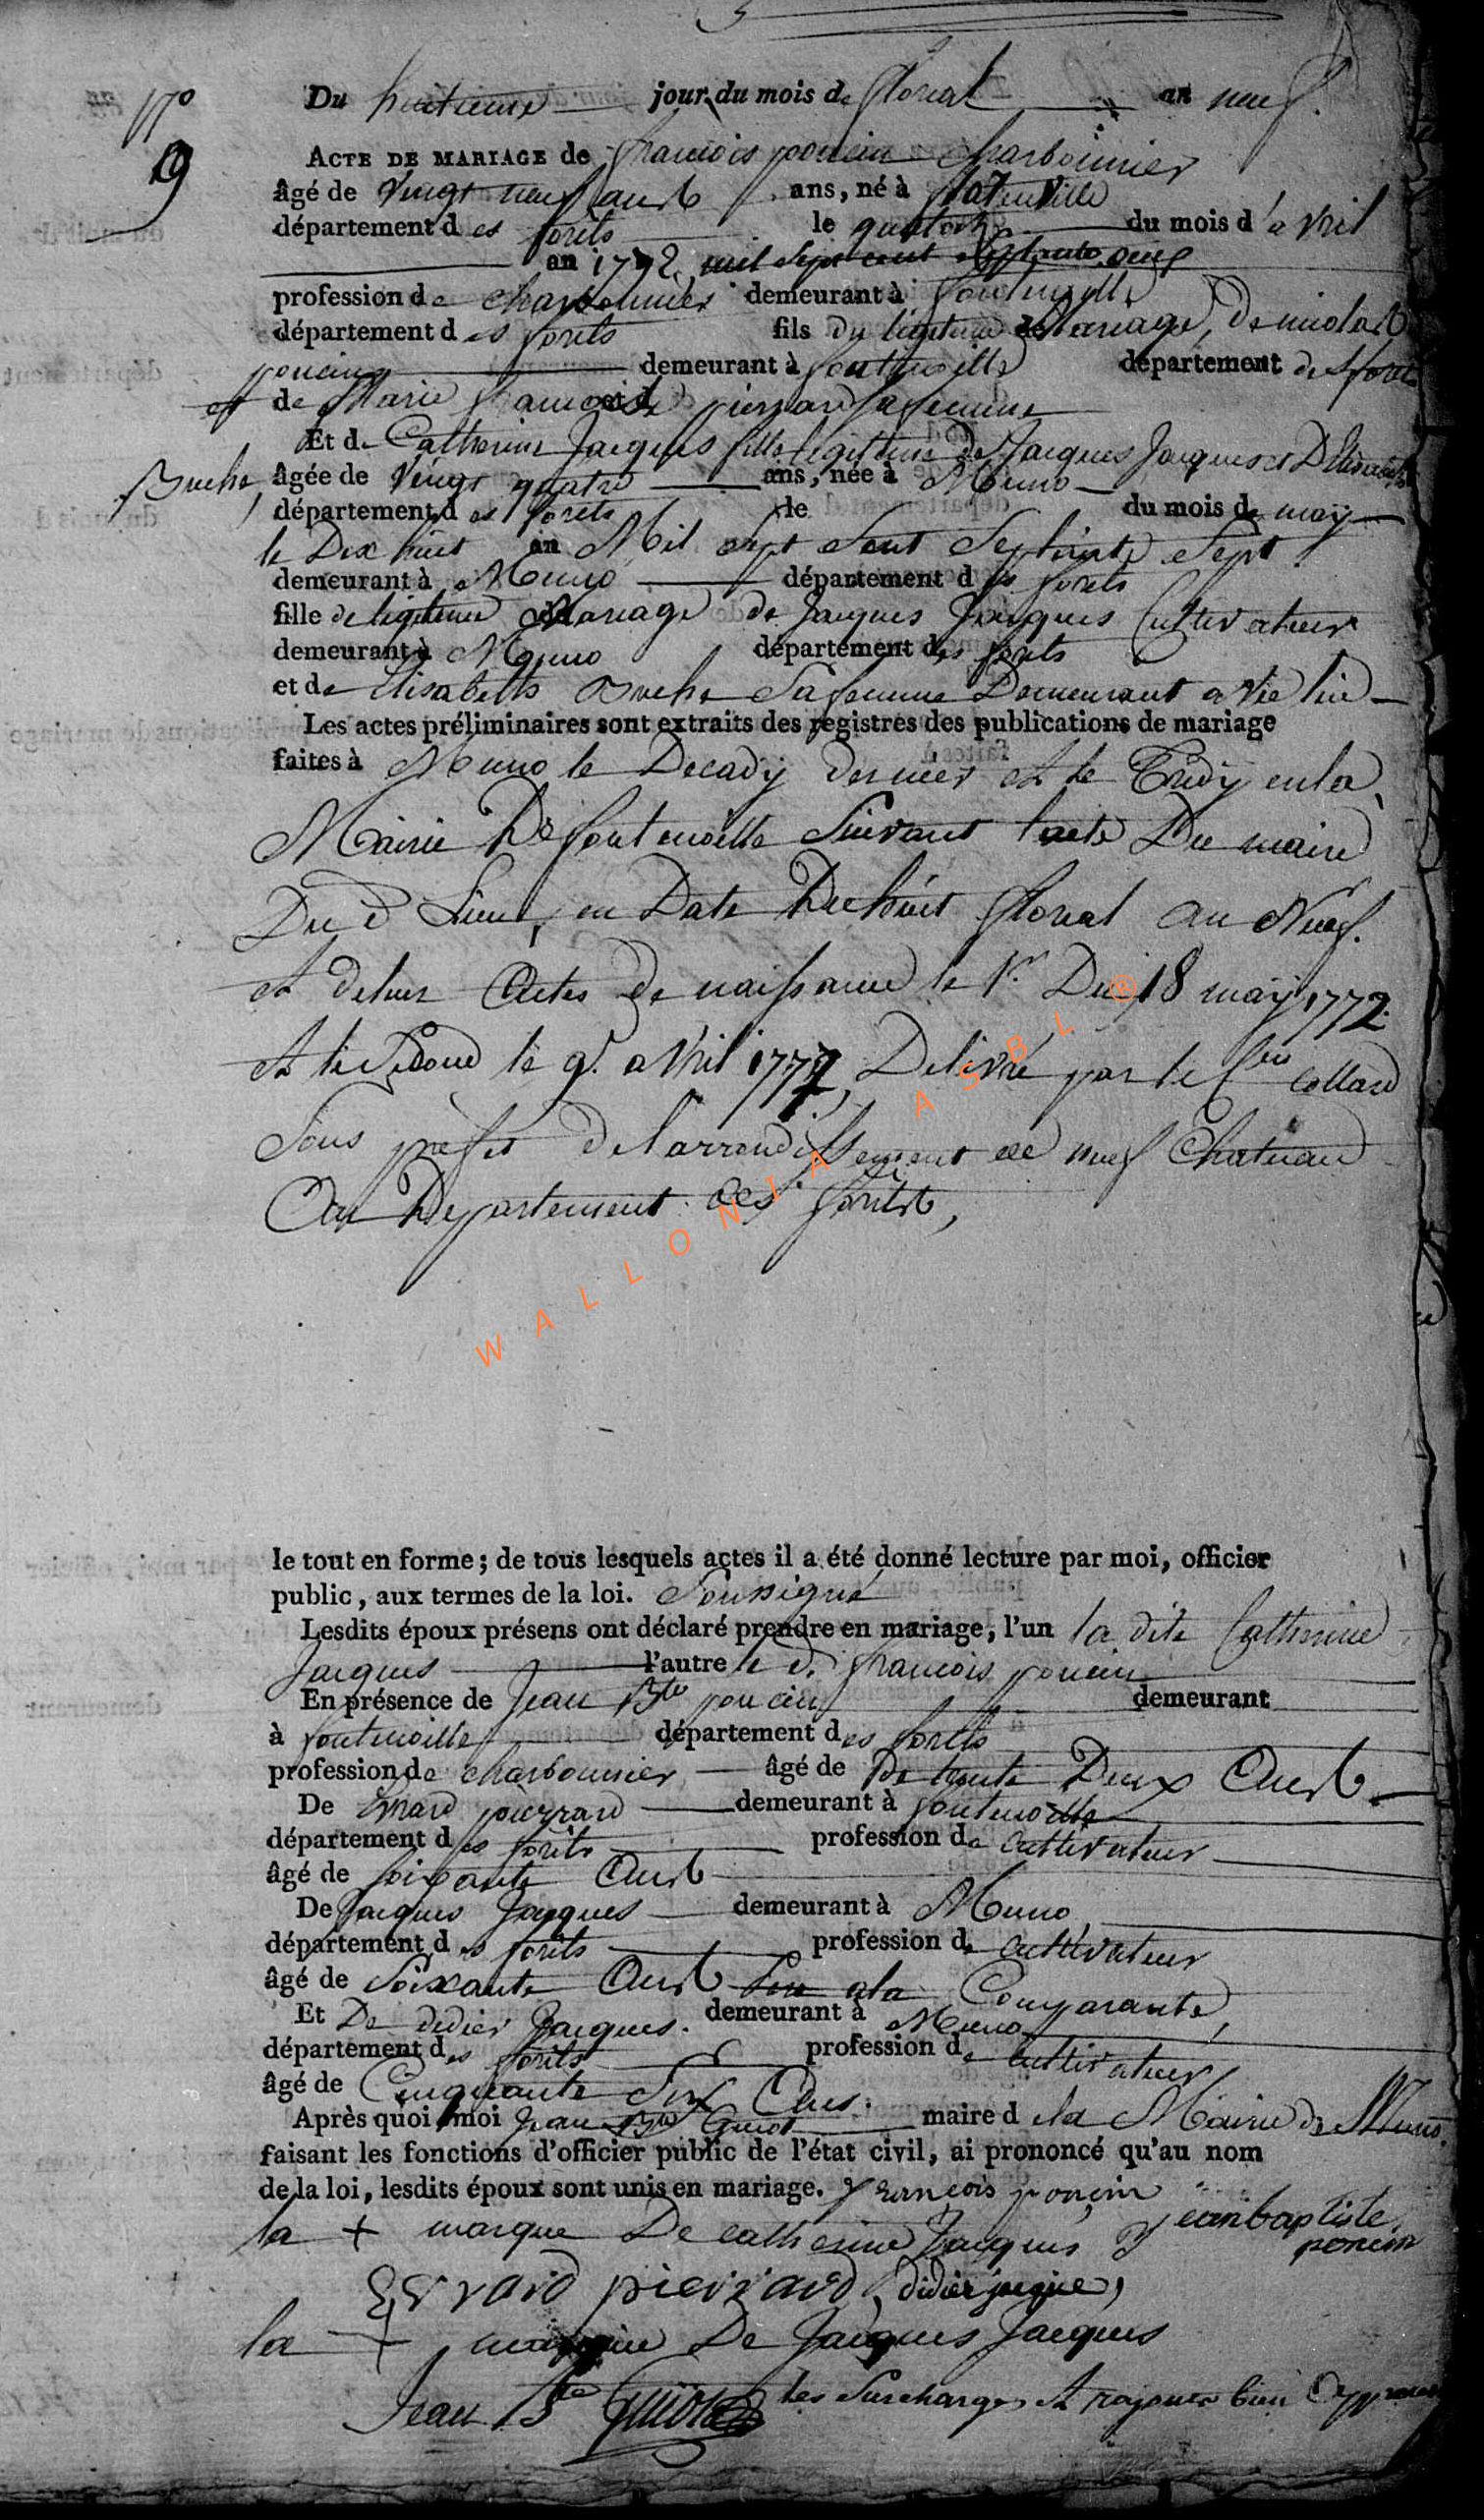 N°
9
Du huitieme jour du mois de floreal an neuf.
ACTE DE MARIAGE de francois poncin charbonnier
âgé de vingt neuf ans ans, né à fontenoille
département des forêts le quatorze du mois d'avril
an 1772. mil sept cent septante
profession de charbonnier demeurant à fontenoille
département des forêts fils du legitime Mariage, De nicolas
poncin demeurant à fontenoille département des forets
et de Marie francoise pierrard sa femme
Et de Catherine Jacques fille legittime de Jacques Jacques et D'Elisabeth
Buche, âgée de vingt quatre ans, née à Muno
département des forets le du mois de maÿ
le Dix huit an Mil sept Cent Septante Sept
demeurant à Muno département des forets
fille de legitime Mariage de Jacques Jacques Cultivateur
demeurant à Muno département des forets
et de Elisabeth Buche Sa femme Demeurant
Les actes préliminaires sont extraits des registres des publications de mariage
faites à Muno le Decadÿ dernier et le Tridÿ en la
Mairie De fontenoille Suivant l'acte Du maire
Du d Lieu, en Date Du huit floreal an Neuf.
et de leur Actes de naissance le 1.er Du 18 maÿ 1772
et le Second le 9. avril 1777, Delivré par le Cen Collard
Sous prefet de l'arrondissement de neuf Chateau
Au Departement des forêts,
WALLONIA ASBL ®
le tout en forme; de tous lesquels actes il a été donné lecture par moi, officier
public, aux termes de la loi. Soussigné
Lesdits époux présens ont déclaré prendre en mariage, l'un la dite Catherine
Jacques l'autre le d. francois poncin
En présence de Jean Bte poncin demeurant
à fontenoille département des forêts
profession de charbonnier âgé de trente Deux Ans
De Evrard pierrard demeurant à fontenoille
département des forêts profession de cultivateur
âgé de soixante Ans
De Jacques Jacques demeurant à Muno
département des forêts profession de cultivateur
âgé de Soixante Ans Pere a la Comparante,
Et De didier Jacques. demeurant à Muno
département des forêts profession de Cultivateur
âgé de Cinquante Six Ans.
Après quoi, moi Jean Bte Guiot maire de la Mairie de Muno.
faisant les fonctions d'officier public de l'état civil, ai prononcé qu'au nom
de la loi, lesdits époux sont unis en mariage. François ponçin
la + marque De catherine Jacques Jean baptiste
poncin
Evrard pierrard didier jacque
la + marque De Jacques Jacques
Jean Bte Guiot les Surcharges et rajoutés bien Approuvés